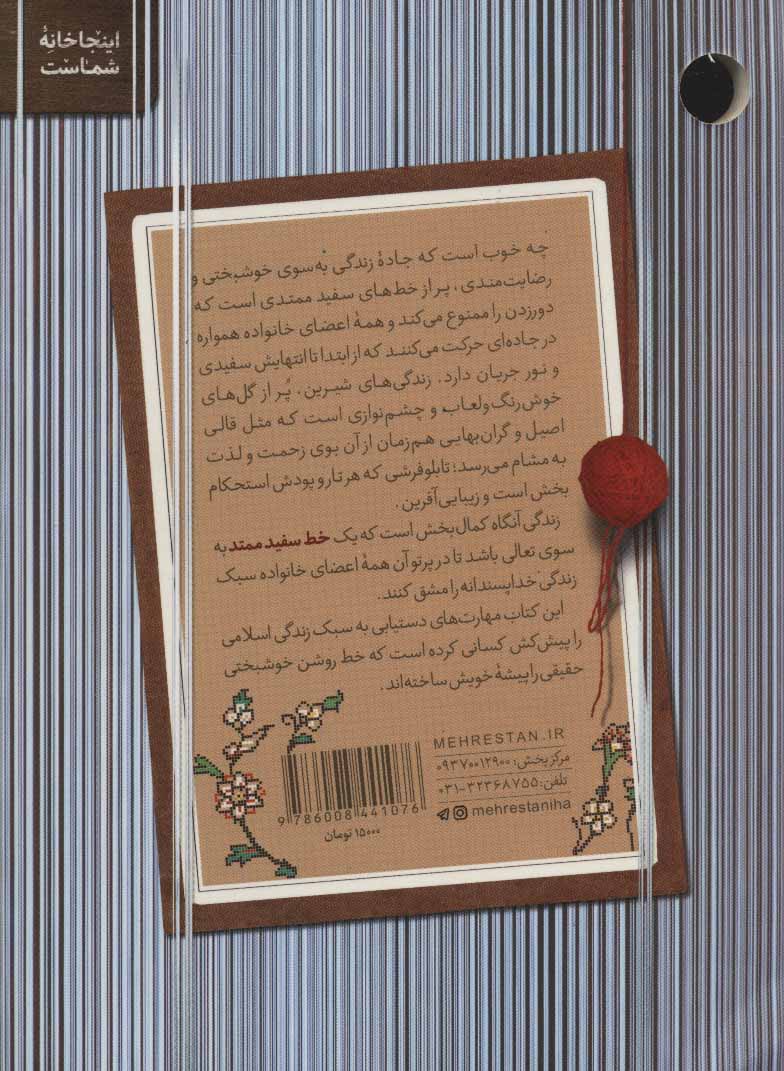 اینجا خانهٔ
شماست
چه خوب است که جادهٔ زندگی به‌سوی خوشبختی و
رضایت‌مندی، پر از خط‌های سفید ممتدی است که
دورزدن را ممنوع می‌کند و همهٔ اعضای خانواده همواره
در جاده‌ای حرکت می‌کنند که از ابتدا تا انتهایش سفیدی
و نور جریان دارد. زندگی‌های شیرین، پُر از گل‌های
خوش‌رنگ‌ولعاب و چشم‌نوازی است که مثل قالی
اصیل و گران‌بهایی هم‌زمان از آن بوی زحمت و لذت
به مشام می‌رسد؛ تابلوفرشی که هر تار و پودش استحکام
بخش است و زیبایی‌آفرین.
زندگی آنگاه کمال‌بخش است که یک خط سفید ممتد به
سوی تعالی باشد تا در پرتو آن همهٔ اعضای خانواده سبک
زندگی خداپسندانه را مشق کنند.
این کتاب مهارت‌های دستیابی به سبک زندگی اسلامی
را پیش‌کش کسانی کرده است که خط روشن خوشبختی
حقیقی را پیشهٔ خویش ساخته‌اند.
MEHRESTAN.IR
مرکز پخش: ۰۹۳۷۰۰۱۲۹۰۰
تلفن: ۳۲۳۶۸۷۵۵-۰۳۱
mehrestaniha
9 786008 441076
۱۵۰۰۰ تومان